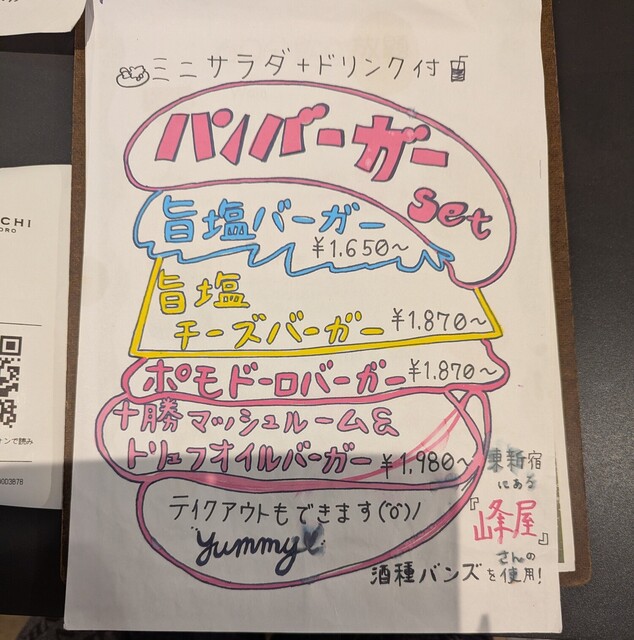 ミニサラダ+ドリンク付
ハンバーガー
set
旨塩バーガー
¥1.650〜
旨塩
チーズバーガー ¥1.870〜
ポモドーロバーガー ¥1.870〜
十勝マッシュルーム&
トリュフオイルバーガー ¥1,980〜
テイクアウトもできます(ö)ノ
yummy
東新宿
にある
『峰屋』
さんの
酒種バンズを使用!
CHI
ORO
ォンで読み
0003878